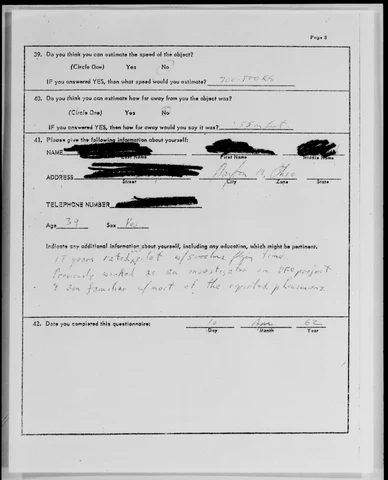 Page 8
39. Do you think you can estimate the speed of the object?
(Circle One) Yes No
IF you answered YES, then what speed would you estimate?
40. Do you think you can estimate how far away from you the object was?
(Circle One) Yes No
IF you answered YES, then how far away would you say it was?
41. Please give the following information about yourself:
NAME
Last Name First Name Middle Name
ADDRESS Dayton Ohio
Street City Zone State
TELEPHONE NUMBER
Age 39 Sex
Indicate any additional information about yourself, including any education, which might be pertinent.
18 years pilot w/ flying time.
Previously worked as an investigator on UFO project
& am familiar w/most of the reported phenomena.
42. Date you completed this questionnaire: 10 62
Day Month Year